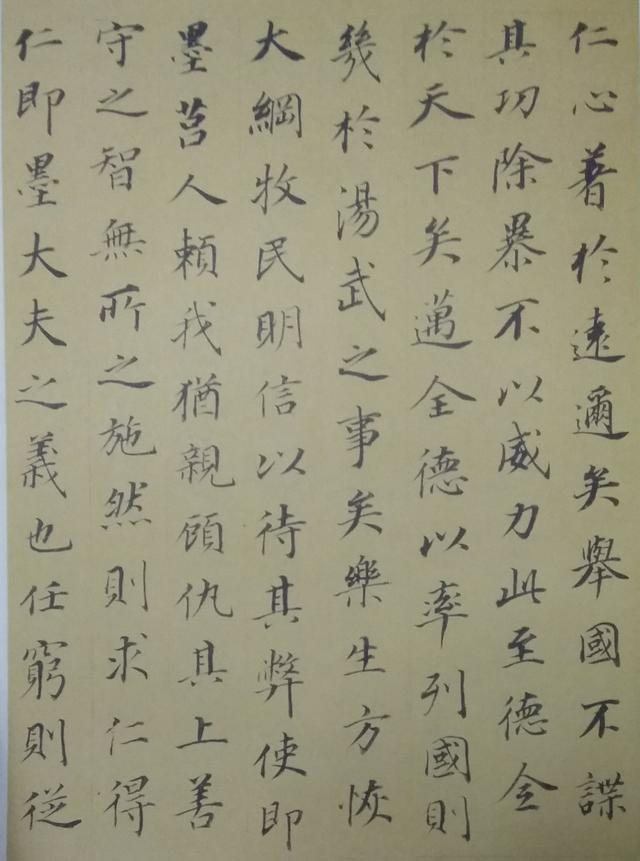 仁心著於遠邇矣舉國不謀
其功除暴不以威力此至德全
於天下矣邁全德以率列國則
幾於湯武之事矣樂生方恢
大綱牧民明信以待其弊使即
墨莒人頼我猶親顧仇其上善
守之智無所之施然則求仁得
仁即墨大夫之義也任窮則從